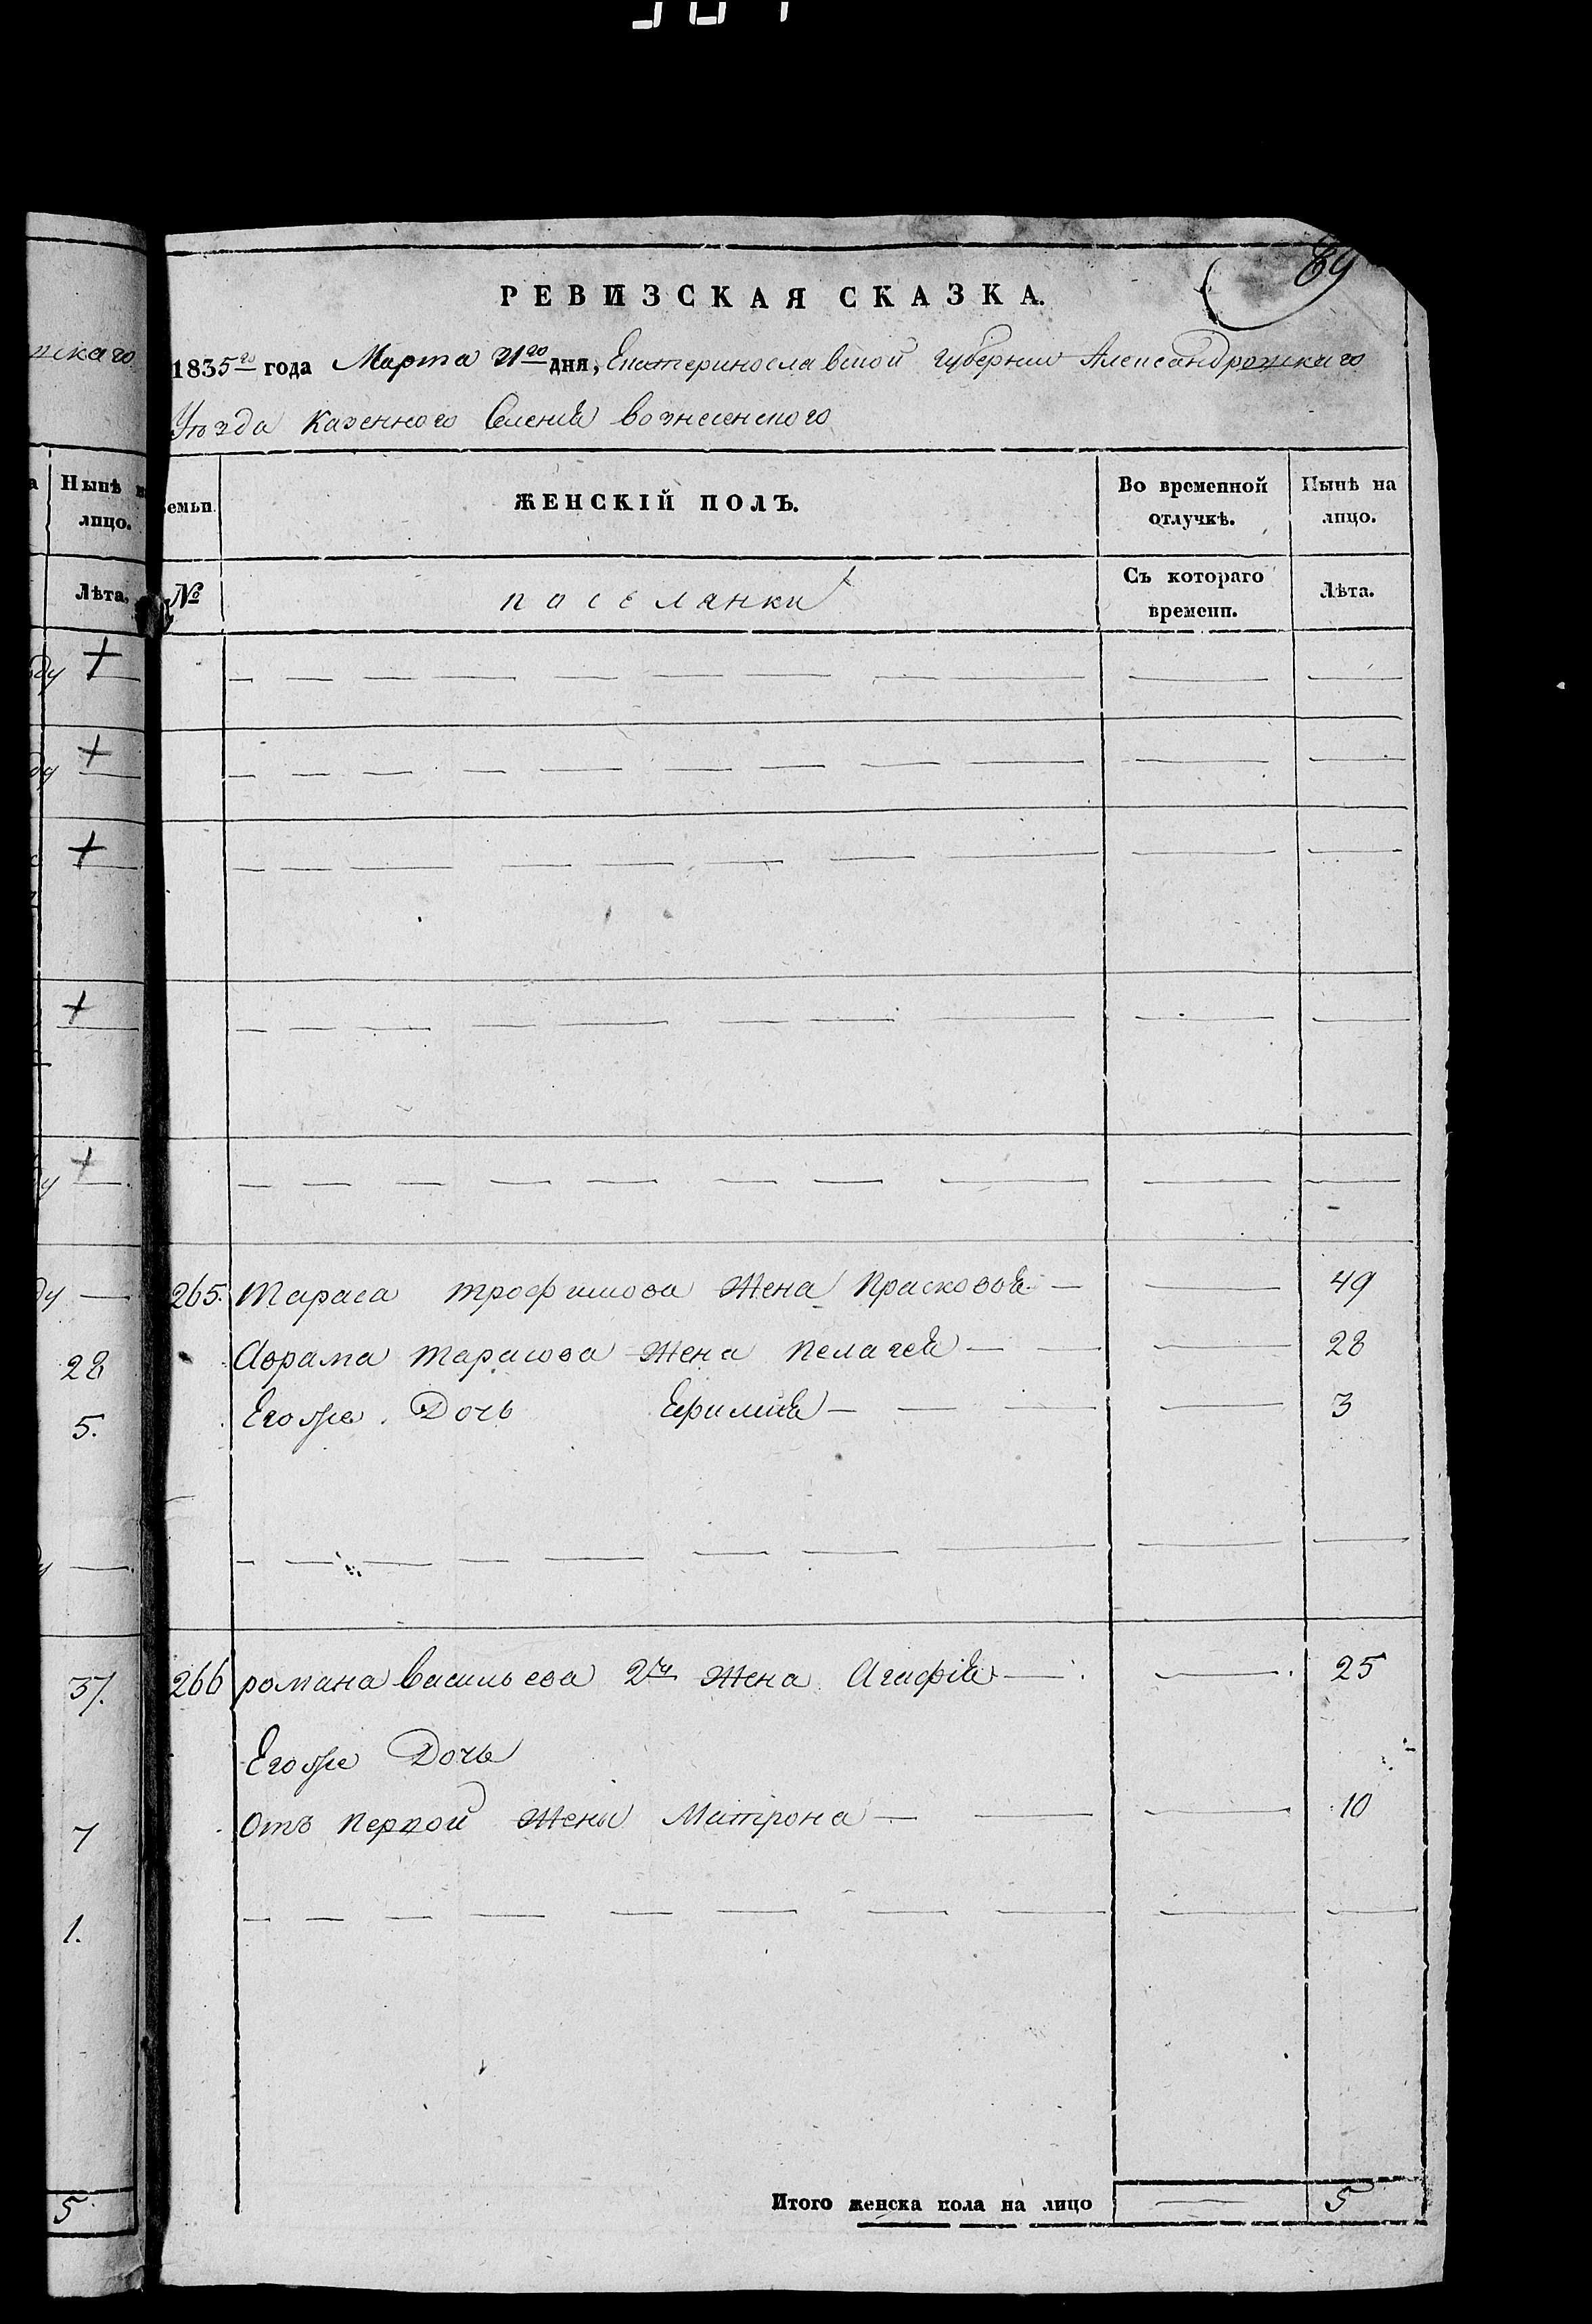 89
РЕВИЗСКАЯ СКАЗКА.
1835го года Марта 31го дня, Екатеринославской губернии Александровскаго
Уѣзда казенного Селенія вознесенского
Нынѣ
лицо.
Лѣта.
ЖЕНСКІЙ ПОЛЪ.
Во временной
отлучкѣ.
Нынѣ на
лицо.
№
поселянки
Съ котораго
времени.
Лѣта.
265. Тараса трофимова Жена Прасковья — — 49
Аврама тарасова Жена пелагея — — 28
Егоже Дочь Ефимия — — 3
266 романа васильева 2я Жена Агафія — — 25
Егоже Дочь
Отъ первой Жены Матрона — — 10
Итого женска пола на лицо — 5
28
5.
37.
7
1.
5